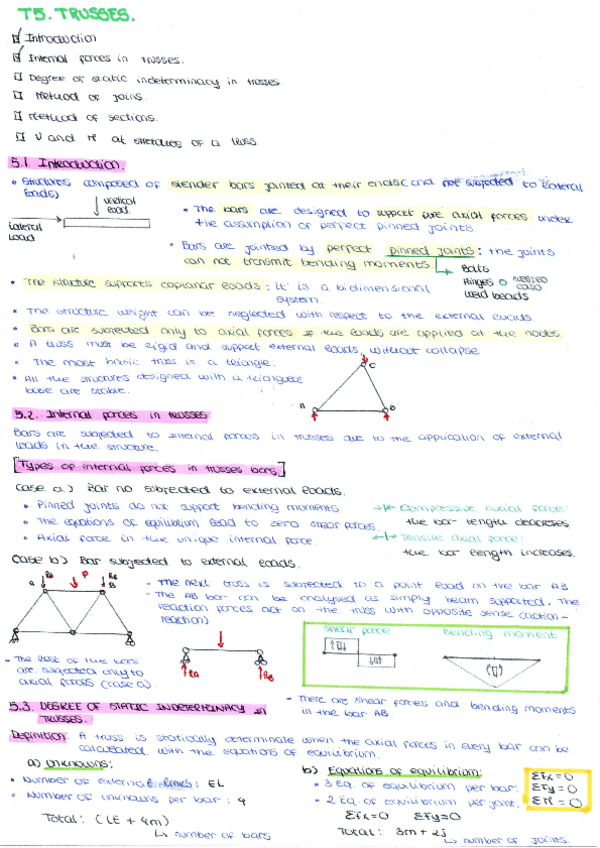 T5. TRUSSES.
Introduction
Internal forces in trusses.
Degree of static indeterminacy in trusses.
Method of joins.
Method of sections.
V and M at stretches of a truss
5.1. Introduction.
• Structures composed of slender bars jointed at their ends and not subjected to lateral
loads)
vertical
load
lateral
load
• The bars are designed to support pure axial forces under
the assumption of perfect pinned joints
• Bars are jointed by perfect pinned joints: the joints
can not transmit bending moments.
Bolts
Hinges
Weld beads
• The structure supports coplanar loads: it is a bidimensional
system.
• The structure weight can be neglected with respect to the external loads
• Bars are subjected only to axial forces if the loads are applied at the nodes.
• A truss must be rigid and support external loads, without collapse
• The most basic truss is a triangle.
• All the structures designed with a triangular
base are stable.
A
B
C
5.2. Internal forces in trusses
Bars are subjected to internal forces in trusses due to the application of external
loads in the structure.
Types of internal forces in trusses bars.
Case a) Bar no subjected to external loads.
• Pinned joints do not support bending moments
• The equations of equilibrium lead to zero shear forces
• Axial force in the unique internal force.
Compressive axial force:
the bar length decreases
Tensile axial force:
the bar length increases.
Case b) Bar subjected to external loads.
A
P
B
- The next truss is subjected to a point load in the bar AB
- The AB bar can be analysed as simply beam supported. The
reaction forces act on the truss with opposite sense (action-
reaction)
RA
RB
shear force
bending moment
- The rest of the bars
are subjected only to
axial forces (case a).
- There are shear forces and bending moments
in the bar AB
5.3. DEGREE OF STATIC INDETERMINACY in
TRUSSES.
Definition: A truss is statically determinate when the axial forces in every bar can be
calculated with the equations of equilibrium.
a) Unknowns:
• Number of external links: EL
• Number of unknowns per bar: 4
Total: (LE + 4m)
↳ number of bars
b) Equations of equilibrium:
• 3 Eq. of equilibrium per bar.
• 2 Eq. of equilibrium per joint.
ΣFx=0 ΣFy=0
Total: 3m + 2j
↳ number of joints.
ΣFx=0
ΣFy=0
ΣM=0